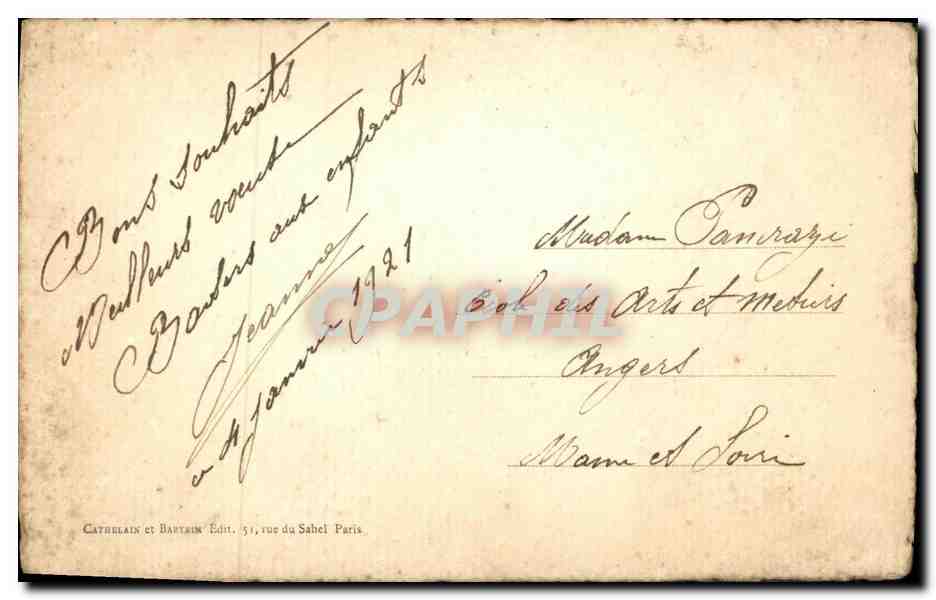 Bons souhaits
Meilleurs vœux
Baisers aux enfants
Jeanne
4 janvier 1921
Madame Pancrazi
École des Arts et Métiers
Angers
Maine et Loire
CPAPHIL
CATHELAIN et BARTRIM Edit. 51, rue du Sahel Paris